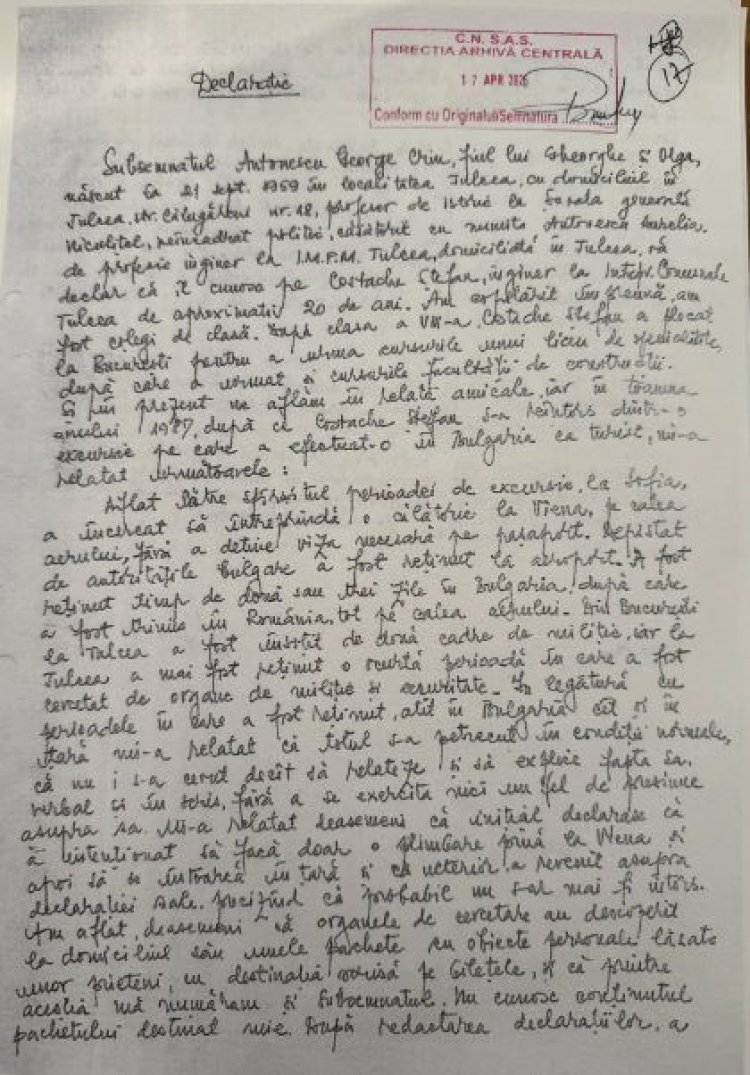 C.N.S.A.S.
DIRECȚIA ARHIVĂ CENTRALĂ
17 APR 2025
Conform cu Originalul/Semnătura
17
Declarație
Subsemnatul Antonescu George Crin, fiul lui Gheorghe și Olga,
născut la 21 sept. 1959 în localitatea Tulcea, cu domiciliul în
Tulcea, str. nr. 18, profesor de istorie la Școala generală
Niculițel, neîncadrat politic, căsătorit cu numita Antonescu Aurelia,
de profesie inginer la I.M.P.M. Tulcea, domiciliată în Tulcea, vă
declar că îl cunosc pe Costache Ștefan, inginer la Intrepr. Comunale
Tulcea de aproximativ 20 de ani. Am copilărit împreună, am
fost colegi de clasă. După clasa a VIII-a, Costache Ștefan a plecat
la București pentru a urma cursurile unui liceu de specialitate,
după care a urmat și cursurile facultății de construcții.
Și în prezent ne aflăm în relații amicale, iar în toamna
anului 1987, după ce Costache Ștefan s-a reîntors dintr-o
excursie pe care a efectuat-o în Bulgaria ca turist, mi-a
relatat următoarele:
Aflat către sfîrșitul perioadei de excursie, la Sofia,
a încercat să întreprindă o călătorie la Viena, pe calea
aerului, fără a deține viza necesară pe pașaport. Depistat
de autoritățile bulgare a fost reținut la aeroport. A fost
reținut timp de două sau trei zile în Bulgaria, după care
a fost trimis în România, tot pe calea aerului. Din București
la Tulcea a fost însoțit de două cadre de miliție, iar la
Tulcea a mai fost reținut o scurtă perioadă în care a fost
cercetat de organe de miliție și securitate. În legătură cu
perioadele în care a fost reținut, atît în Bulgaria cît și în
țară mi-a relatat că totul s-a petrecut în condiții normale,
că nu i s-a cerut decît să relateze și să explice fapta sa,
verbal și în scris, fără a se exercita nici un fel de presiune
asupra sa. Mi-a relatat deasemeni că inițial declarase că
a intenționat să facă doar o plimbare pînă la Viena și
apoi să se întoarcă în țară și că ulterior, a revenit asupra
declarației sale, precizînd că probabil nu s-ar mai fi întors.
Am aflat, deasemeni că organele de cercetare au descoperit
la domiciliul său unele pachete cu obiecte personale lăsate
unor prieteni, cu destinația scrisă pe bilețele, și că printre
aceștia mă număram și subsemnatul. Nu cunosc conținutul
pachetului destinat mie. După redactarea declarațiilor, a